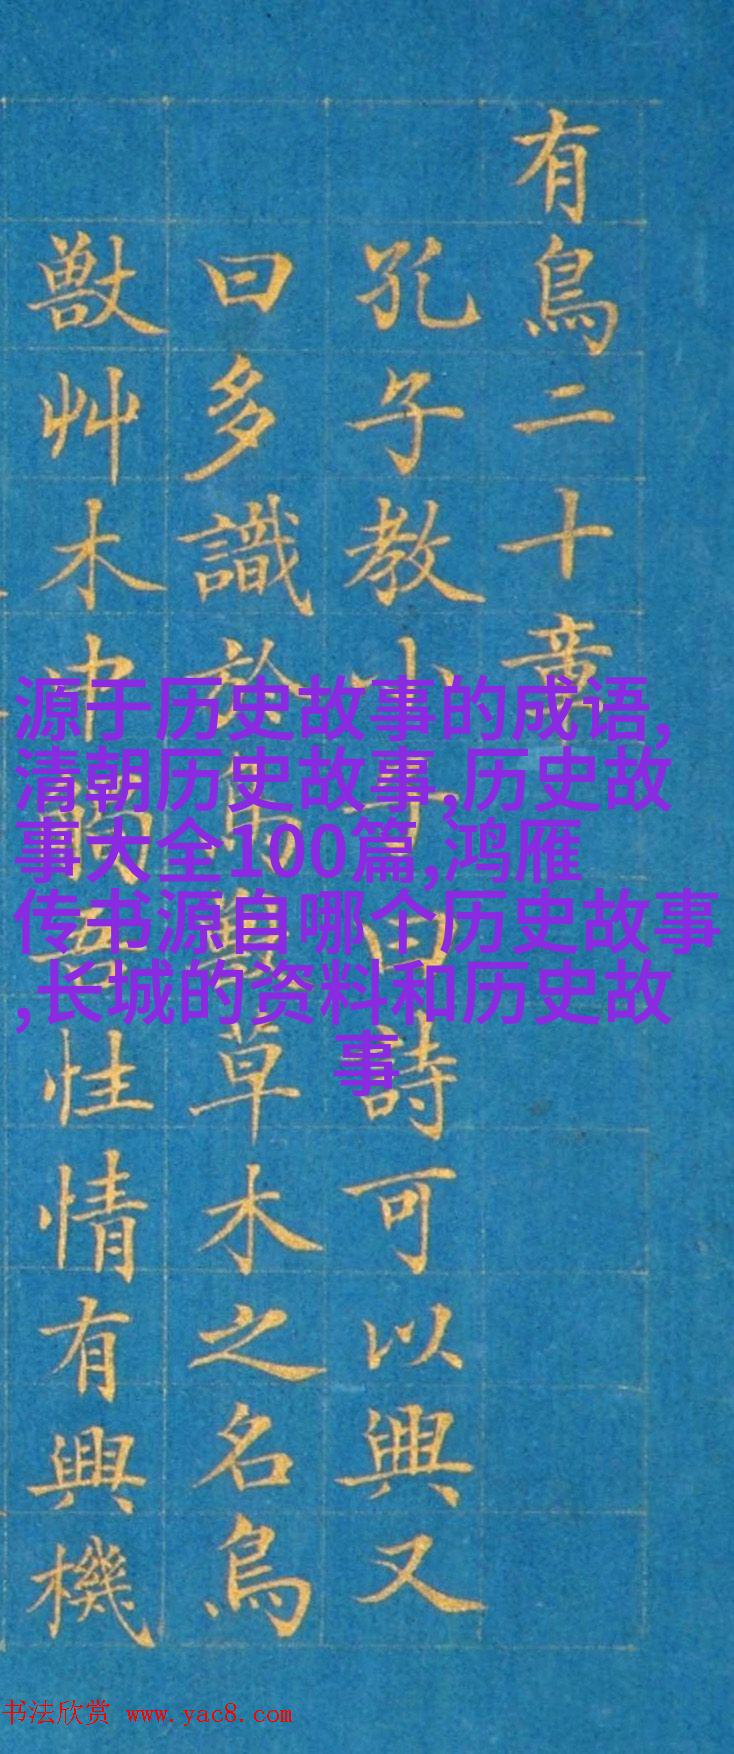 有鳥二十章
孔子教小子曰詩可以興又
曰多識於鳥獸草木之名鳥
獸艸木中吾性情有興機
源于历史故事的成语,
清朝历史故事,历史故
事大全100篇,鸿雁
传书源自哪个历史故事
,长城的资料和历史故
事
书法欣赏 www.yac8.com